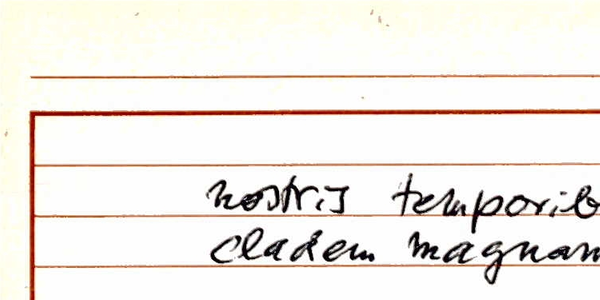 nostris temporib
cladem magnam